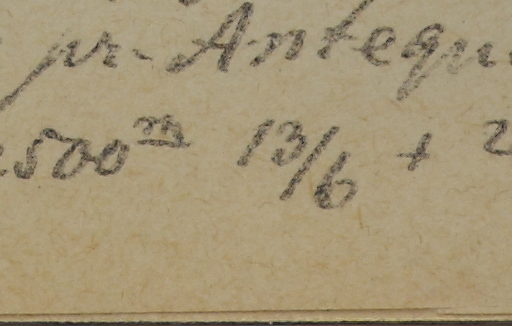 pr. Antequ
500 m 13/6 + 2